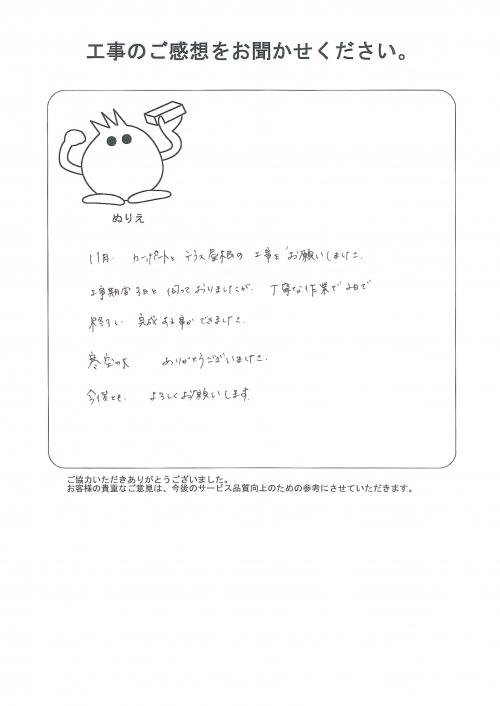 工事のご感想をお聞かせください。
ぬりえ
11月. カーポートと テラス屋根の 工事を お願いしました.
工事期間3日と 伺っておりましたが. 丁寧な作業で 2日で
終了し 完成する事ができました.
寒空の大 ありがとうございました.
今後とも. よろしくお願いします.
ご協力いただきありがとうございました。
お客様の貴重なご意見は、今後のサービス品質向上のための参考にさせていただきます。